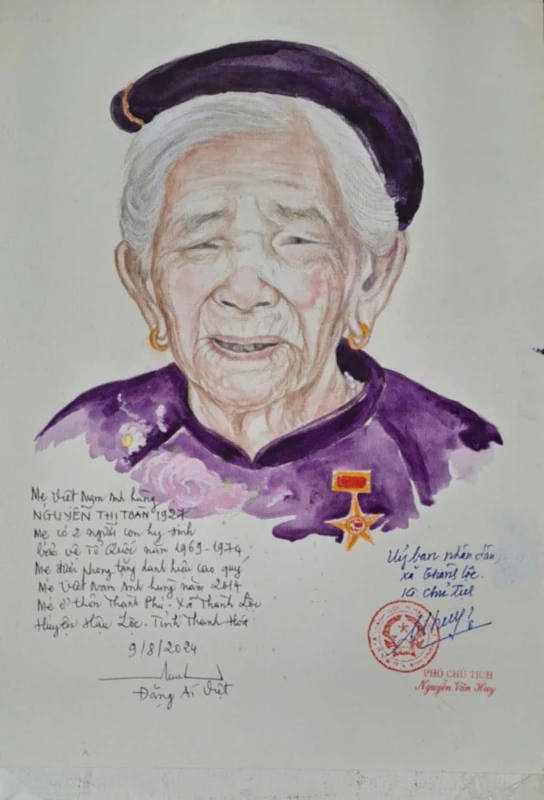 Mẹ Việt Nam Anh hùng
NGUYỄN THỊ TOAN 1927
Mẹ có 2 người con hy sinh
bảo vệ Tổ Quốc năm 1969-1974
Mẹ được Nhà nước tặng danh hiệu cao quý
Mẹ Việt Nam Anh hùng năm 2014
Mẹ ở thôn Thanh Phú - Xã Thành Lộc
Huyện Hậu Lộc. Tỉnh Thanh Hóa
9/8/2024
Đặng Ái Việt
Uỷ ban nhân dân
xã Thành Lộc
K. Chủ tịch
PHÓ CHỦ TỊCH
Nguyễn Văn Huy